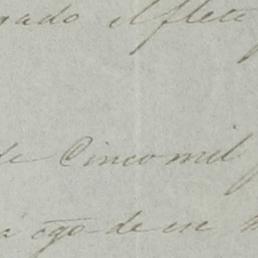 gado el flete
de Cinco mil
a cgo de ese